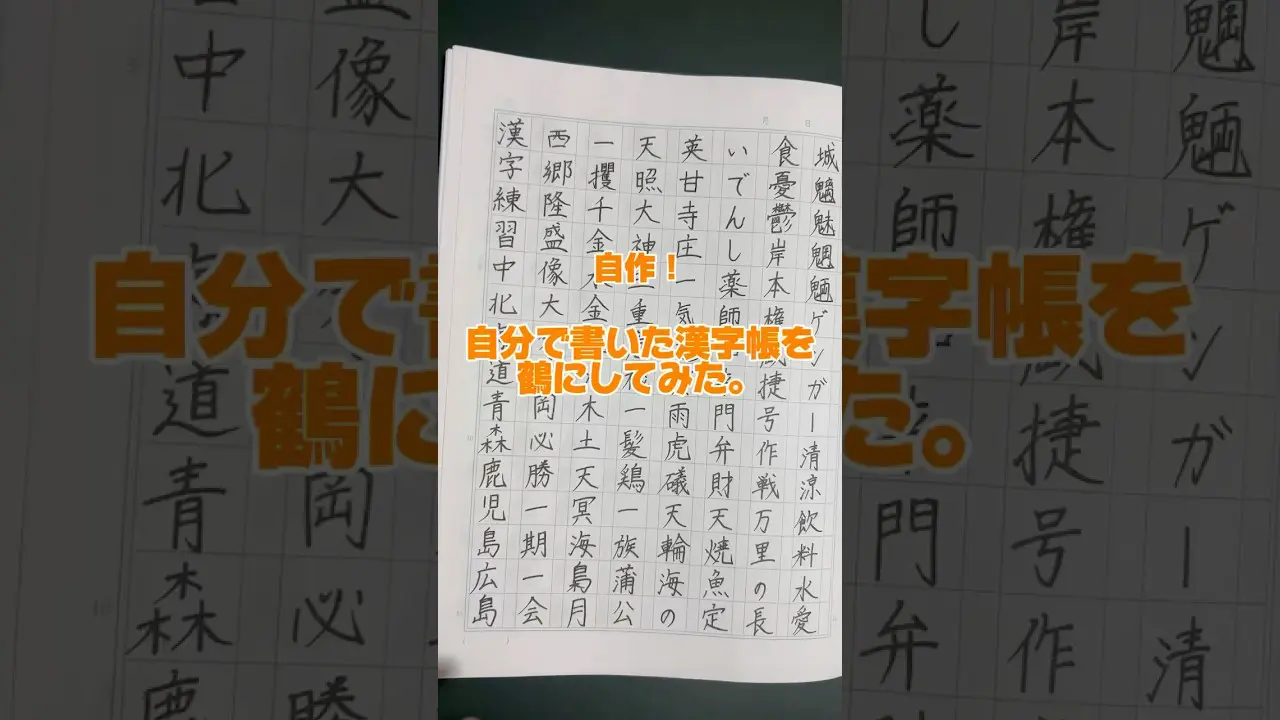 自作！
自分で書いた漢字帳を
鶴にしてみた。
漢字練習中北道青森鹿児島広島
西郷隆盛像大岡必勝一期一会
一攫千金水金木土天冥海梟月
天照大神一重一髪鶏一族蒲公
英甘寺庄一気雨虎磯天輪海の
いでんし薬師門弁財天焼魚定
食憂鬱岸本権捷号作戦万里の長
城魑魅魍魎ゲンガー清涼飲料水愛